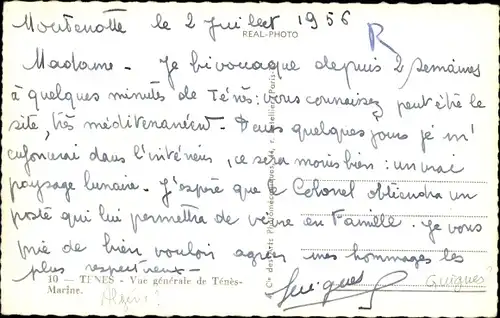 Montenotte le 2 Juillet 1956
REAL-PHOTO
R
Madame - Je bivouaque depuis 2 semaines
à quelques minutes de Ténès: vous connaissez peut être le
site, très méditerranéen. Dans quelques jours je m'
enfoncerai dans l'intérieur, ce sera moins bien: un vrai
paysage lunaire. J'espère que le Colonel obtiendra un
poste qui lui permettra de vivre en famille. Je vous
prie de bien vouloir agréer mes hommages les
plus respectueux -
10 — TÉNÈS - Vue générale de Ténès-
Marine.
Algérie
Guigues
Guigues?